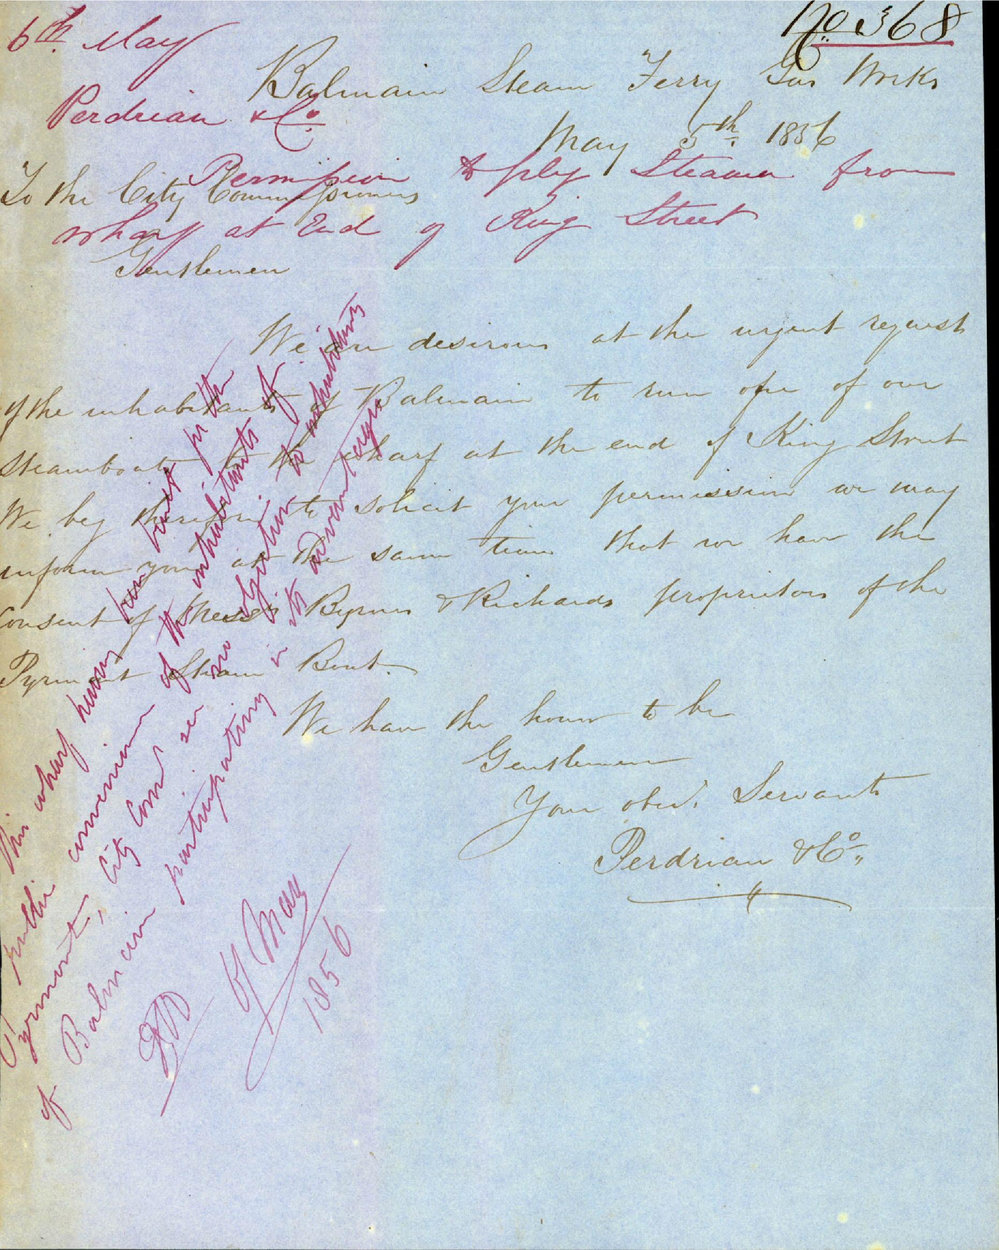 No. 368
6th May
Perdriau & Co.
Permission to ply Steamer from
wharf at End of King Street
Balmain Steam Ferry Gas Works
May 5th 1856
To the City Commissioners
Gentlemen
We are desirous at the urgent request
of the inhabitants of Balmain to run one of our
Steamboats to the wharf at the end of King Street
We beg therefore to solicit your permission we may
inform you at the same time that we have the
consent of Messrs Byrnes & Richards proprietors of the
Pyrmont Steam Boat.
We have the honor to be
Gentlemen
Your obedt. Servants
Perdriau & Co.
This wharf having been built for the
public convenience of the inhabitants of
Pyrmont, City Comrs see no objection to inhabitants
of Balmain participating in its advantages
6 May
1856